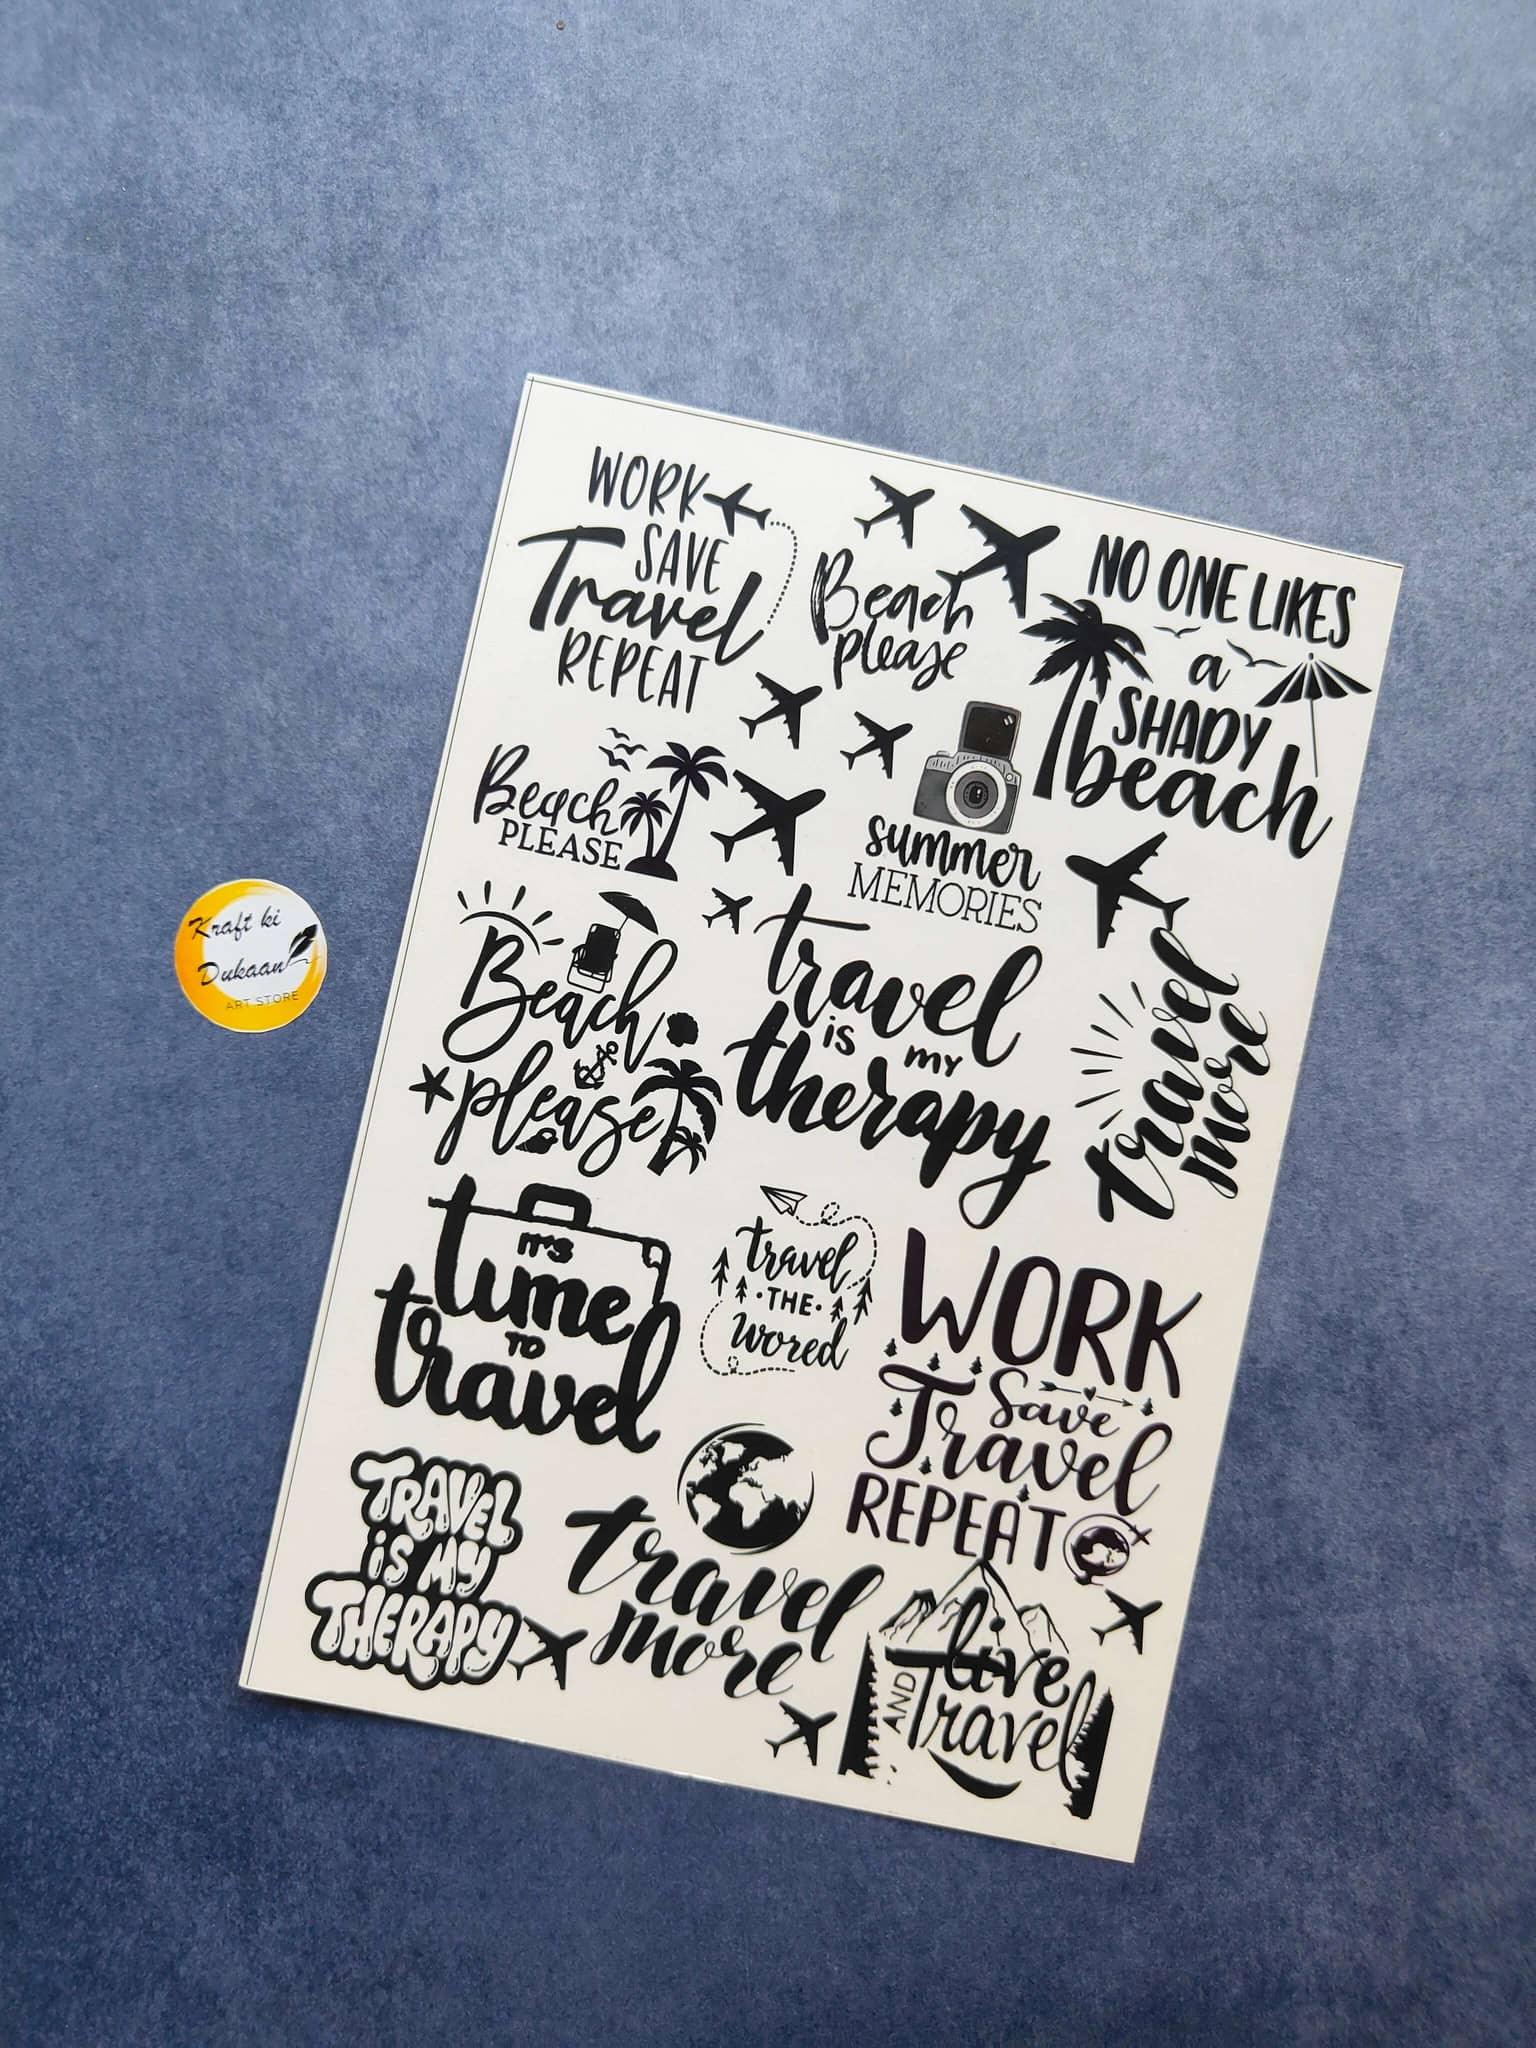 WORK
SAVE
Travel
REPEAT
Beach
please
NO ONE LIKES
a
SHADY
beach
Beach
PLEASE
summer
MEMORIES
Kraft ki
Dukaan
ART STORE
Beach
please
travel
is my
therapy
travel
more
IT'S
time
TO
travel
travel
THE
wored
WORK
Save
Travel
REPEAT
TRAVEL
iS MY
THERAPY
travel
more
live
AND
Travel